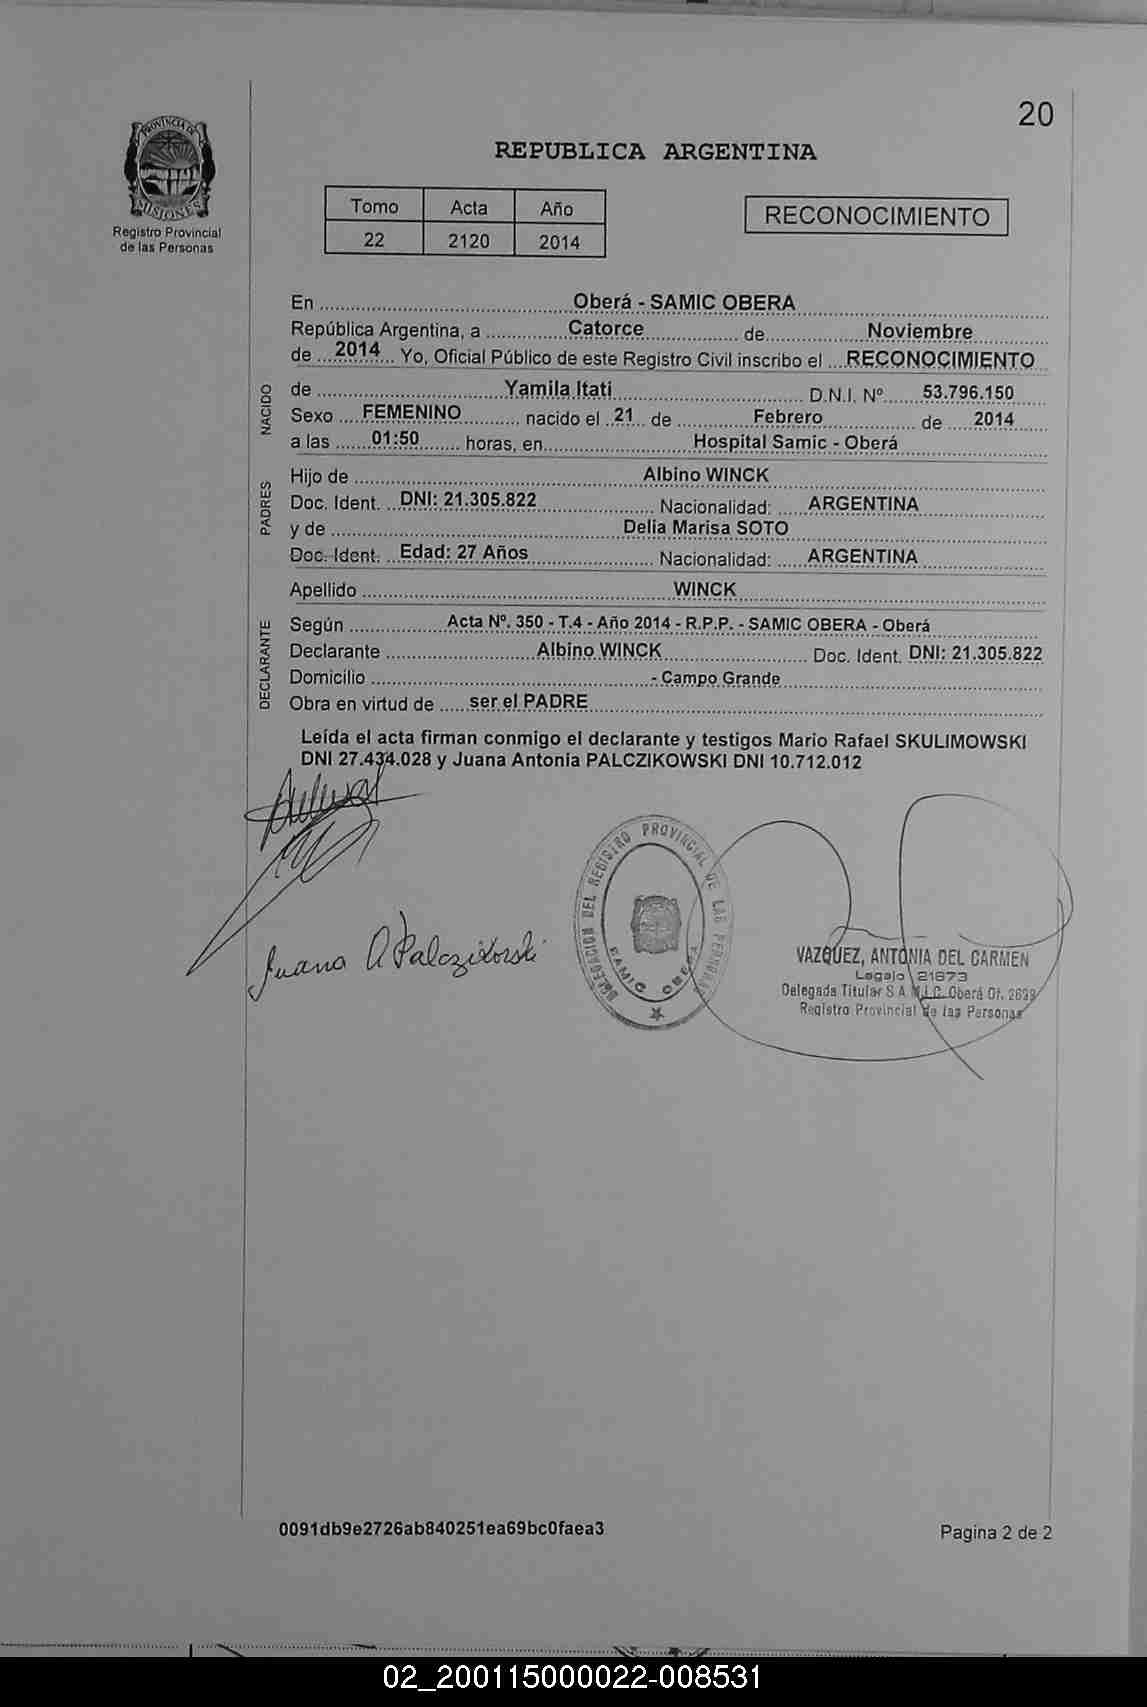 20
PROVINCIA DE
MISIONES
Registro Provincial
de las Personas
REPUBLICA ARGENTINA
Tomo Acta Año
22 2120 2014
RECONOCIMIENTO
En ........ Oberá - SAMIC OBERA
República Argentina, a ........ Catorce ........ de ........ Noviembre
de ... 2014 ... Yo, Oficial Público de este Registro Civil inscribo el ... RECONOCIMIENTO
NACIDO
de ........ Yamila Itati ........ D.N.I. Nº ........ 53.796.150
Sexo .... FEMENINO ........ nacido el .. 21 .. de ........ Febrero ........ de ..... 2014
a las ...... 01:50 ........ horas, en ........ Hospital Samic - Oberá
PADRES
Hijo de ........ Albino WINCK
Doc. Ident. .. DNI: 21.305.822 ........ Nacionalidad: ..... ARGENTINA
y de ........ Delia Marisa SOTO
Doc. Ident. .. Edad: 27 Años ........ Nacionalidad: ..... ARGENTINA
Apellido ........ WINCK
DECLARANTE
Según ........ Acta Nº. 350 - T.4 - Año 2014 - R.P.P. - SAMIC OBERA - Oberá
Declarante ........ Albino WINCK ........ Doc. Ident. DNI: 21.305.822
Domicilio ........ - Campo Grande
Obra en virtud de ..... ser el PADRE
Leída el acta firman conmigo el declarante y testigos Mario Rafael SKULIMOWSKI
DNI 27.434.028 y Juana Antonia PALCZIKOWSKI DNI 10.712.012
Juana A Palczikowski
DELEGACION DEL REGISTRO PROVINCIAL DE LAS PERSONAS
SAMIC OBERA
VAZQUEZ, ANTONIA DEL CARMEN
Legajo 21673
Delegada Titular S.A.M.I.C. Oberá Of. 2639
Registro Provincial de las Personas
0091db9e2726ab840251ea69bc0faea3
Pagina 2 de 2
02_200115000022-008531